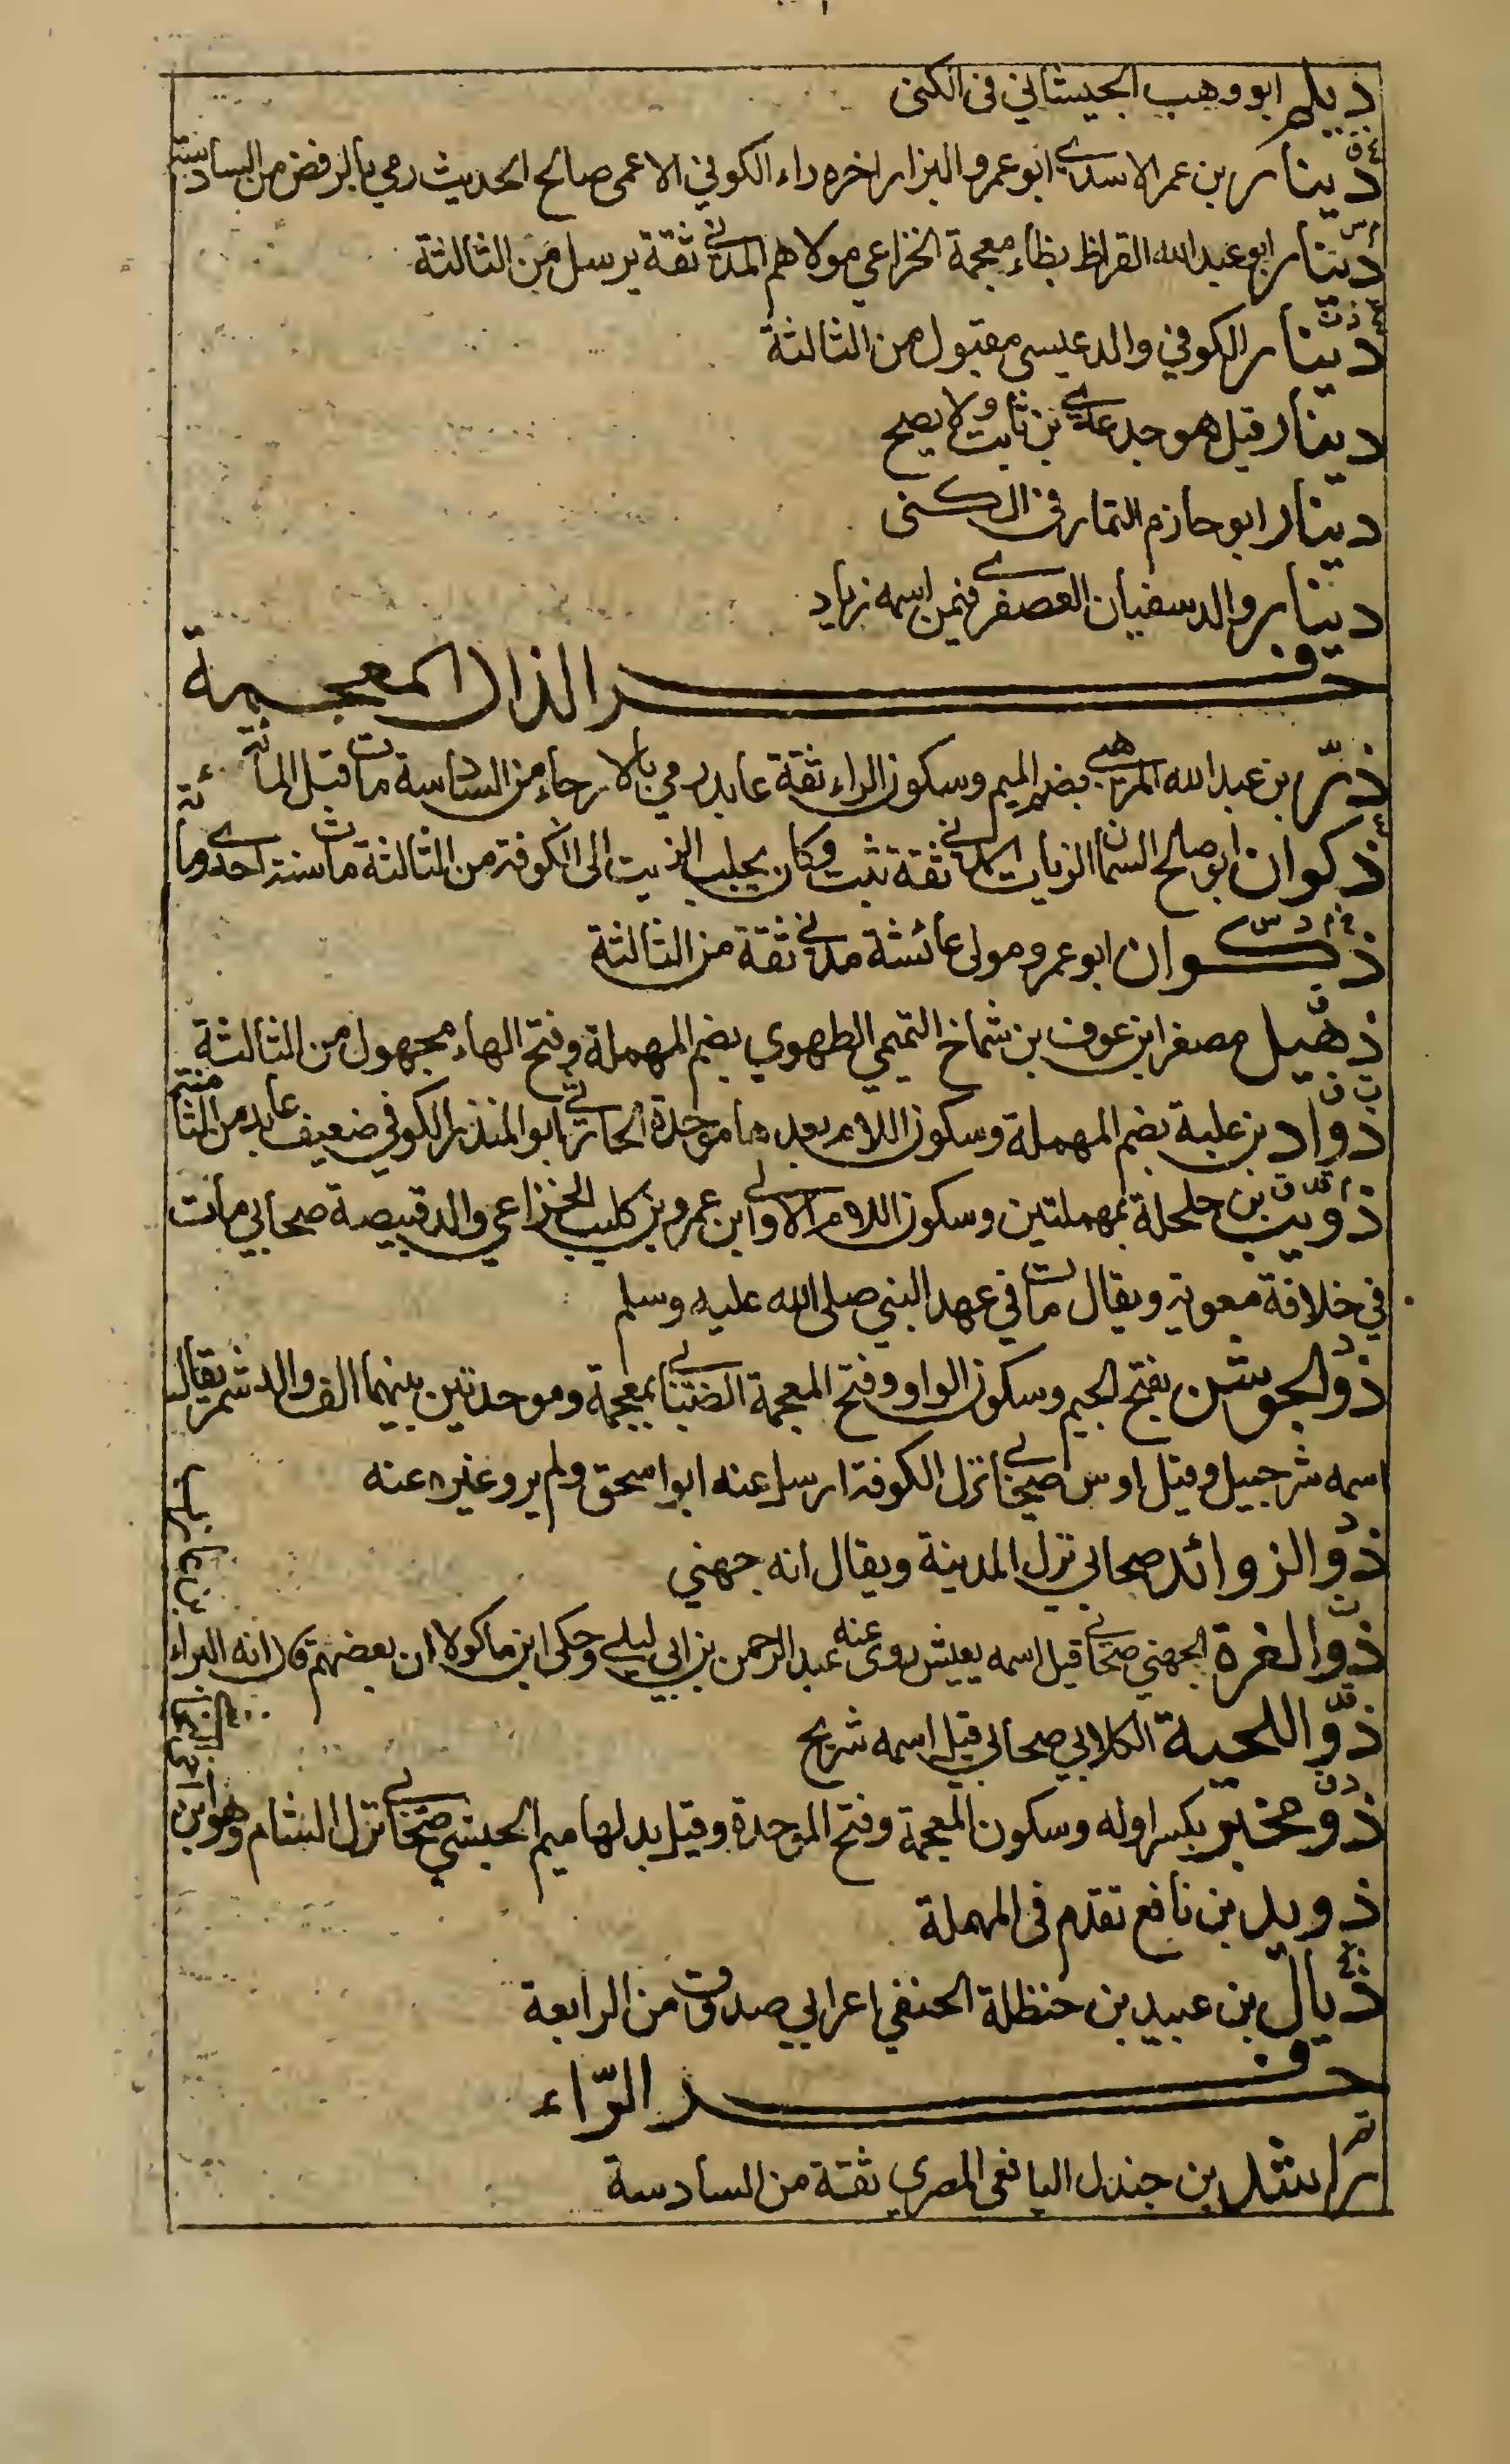 ديلم ابو وهب الجيشاني في الكنى
دينار بن عمر الاسدي ابو عمرو البزار اخره راء الكوفي الاعمى صالح الحديث رمي بالرفض من السادسة
دينار ابو عبد الله القراظ بظاء معجمة الخزاعي مولاهم المدني ثقة يرسل من الثالثة
دينار الكوفي والد عيسى مقبول من الثالثة
دينار قيل هو جد عدي بن ثابت ولا يصح
دينار ابو حازم التمار في الكنى
دينار والد سفيان العصفري فيمن اسمه زياد
حرف الذال المعجمة
ذر بن عبد الله المرهبي بضم الميم وسكون الراء ثقة عابد رمي بالارجاء من السادسة مات قبل المائة
ذكوان ابو صالح السمان الزيات المدني ثقة ثبت وكان يجلب الزيت الى الكوفة من الثالثة مات سنة احدى ومائة
ذكوان ابو عمرو مولى عائشة مدني ثقة من الثالثة
ذهيل مصغر ابن عوف بن شماخ التميمي الطهوي بضم المهملة وفتح الهاء مجهول من الثالثة
ذواد بن علبة بضم المهملة وسكون اللام بعدها موحدة الحارثي ابو المنذر الكوفي ضعيف عابد من الثامنة
ذويب بن حلحلة بمهملتين وسكون اللام الاولى ابن عمرو بن كليب الخزاعي والد قبيصة صحابي مات
في خلافة معوية ويقال مات في عهد النبي صلى الله عليه وسلم
ذو الجوشن بفتح الجيم وسكون الواو وفتح المعجمة الضبابي بمعجمة وموحدتين بينهما الف والد شمر يقال
اسمه شرحبيل وقيل اوس صحابي نزل الكوفة ارسل عنه ابو اسحق ولم يرو غيره عنه
ذو الزوائد صحابي نزل المدينة ويقال انه جهني
ذو الغرة الجهني صحابي قيل اسمه يعيش روى عنه عبد الرحمن بن ابي ليلى وحكى ابن ماكولا ان بعضهم قال انه البراء
ذو اللحية الكلابي صحابي قيل اسمه شريح
ذو مخبر بكسر اوله وسكون المعجمة وفتح الموحدة وقيل بدلها ميم الحبشي صحابي نزل الشام وهو ابن
ذويد بن نافع تقدم في المهملة
ذيال بن عبيد بن حنظلة الحنفي اعرابي صدوق من الرابعة
حرف الراء
راشد بن جندل اليافعي المصري ثقة من السادسة